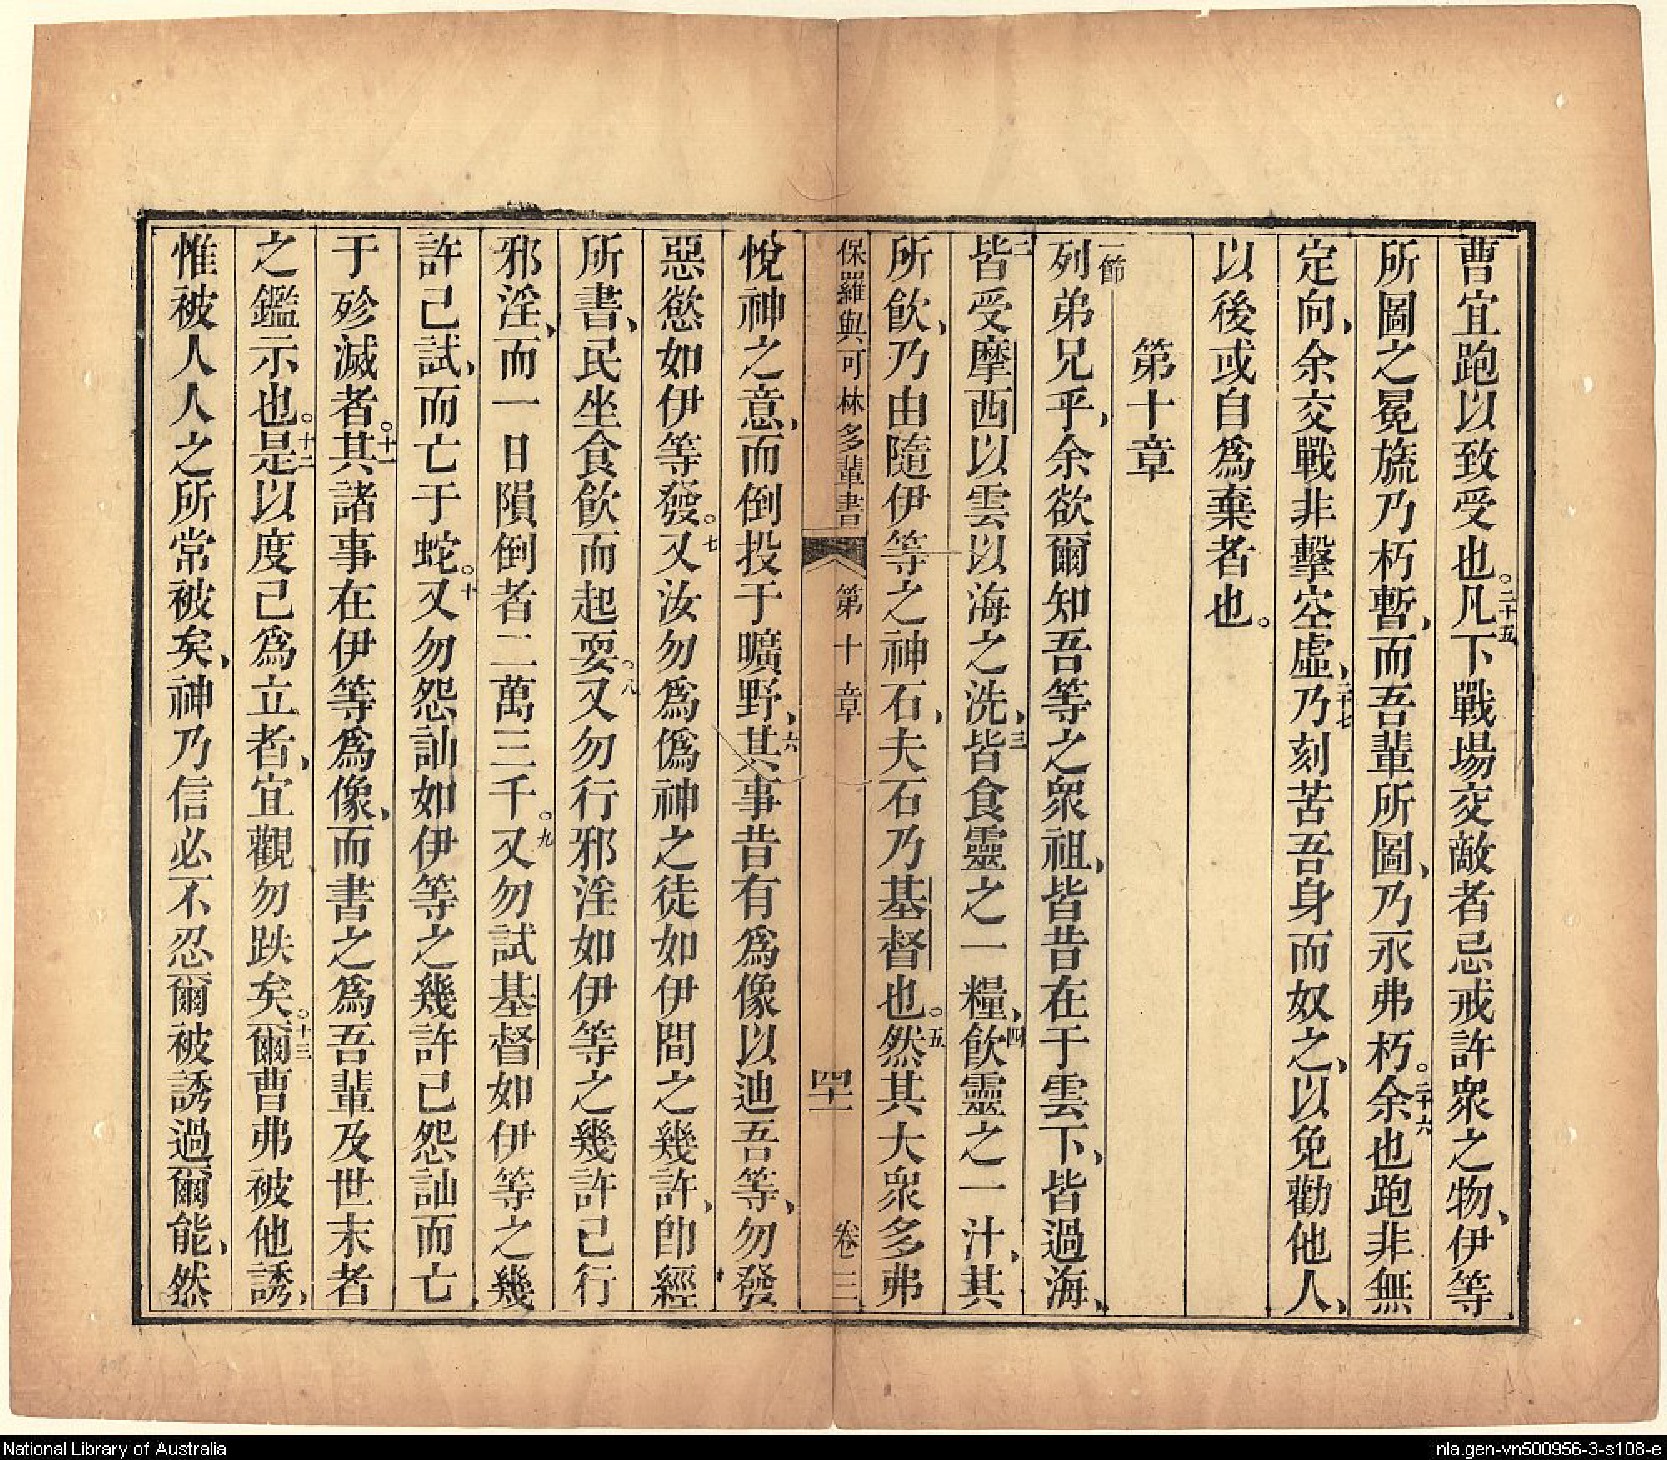 曹宜跑以致受也。二十五凡下戰場交敵者忌戒許衆之物、伊等
所圖之冕旒乃朽暫、而吾輩所圖、乃永弗朽。二十六余也跑非無
定向、余交戰非擊空虛、二十七乃刻苦吾身而奴之、以免勸他人、
以後或自為棄者也。
第十章
一節列弟兄乎、余欲爾知吾等之衆祖、皆昔在于雲下、皆過海、
二皆受摩西以雲以海之洗、三皆食靈之一糧、四飲靈之一汁、其
所飲、乃由隨伊等之神石、夫石乃基督也。五然其大衆多弗
保羅與可林多輩書 第十章 四十一 卷三
悅神之意、而倒投于曠野、六其事昔有為像以迪吾等、勿發
惡慾如伊等發。七又汝勿為偽神之徒如伊間之幾許、即經
所書、民坐食飲而起耍。八又勿行邪淫如伊等之幾許己行
邪淫、而一日隕倒者二萬三千。九又勿試基督如伊等之幾
許己試、而亡于蛇。十又勿怨訕如伊等之幾許己怨訕而亡
于殄滅者。十一其諸事在伊等為像、而書之為吾輩及世末者
之鑑示也。十二是以度己為立者、宜觀勿跌矣。十三爾曹弗被他誘、
惟被人人之所常被矣、神乃信必不忍爾被誘過爾能、然
National Library of Australia
nla.gen-vn500956-3-s108-e